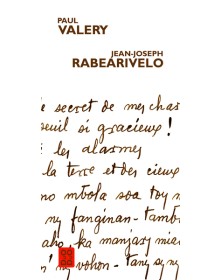 PAUL
VALERY
JEAN-JOSEPH
RABEARIVELO
e secret de mes char
euil si gracieux !
les alarmes
la terre et des cieux
no mbola soa toy n
ny fanginan - tamb
aho, ka manjary mia
ny vohon - Tany sy n